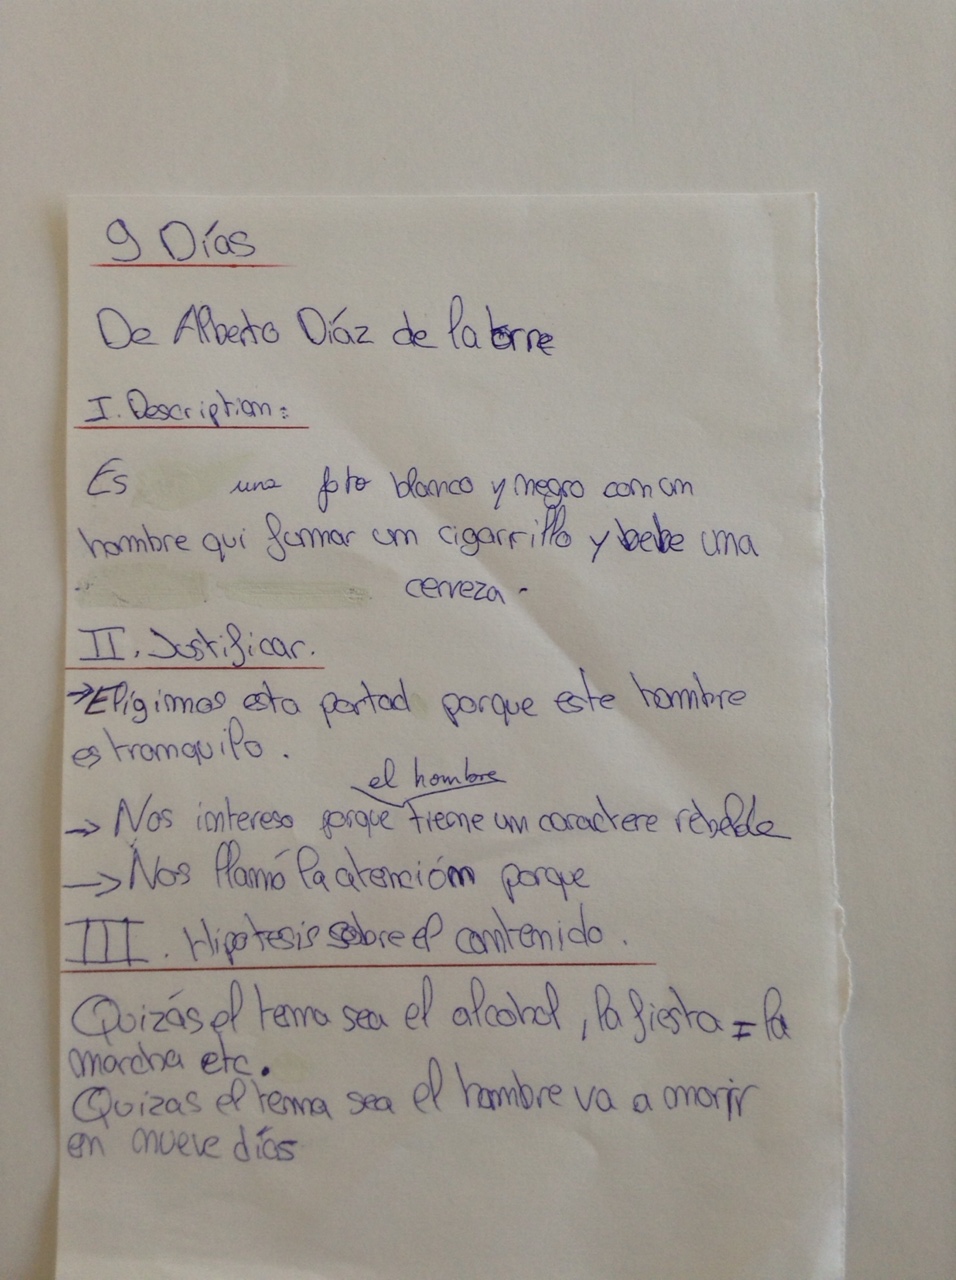 9 Días
De Alberto Díaz de la torre
I. Description:
Es una foto blanco y negro con un
hombre qui fumar un cigarrillo y bebe una
cerveza.
II. Justificar.
→ Eligimos esta portad porque este hombre
es tranquilo.
el hombre
→ Nos intereso porque tiene un caractere rébelde
→ Nos llamó la atención porque
III. Hipotesis sobre el contenido.
Quizás el tema sea el alcohol, la fiesta = la
marcha etc.
Quizas el tema sea el hombre va a morir
en nueve días